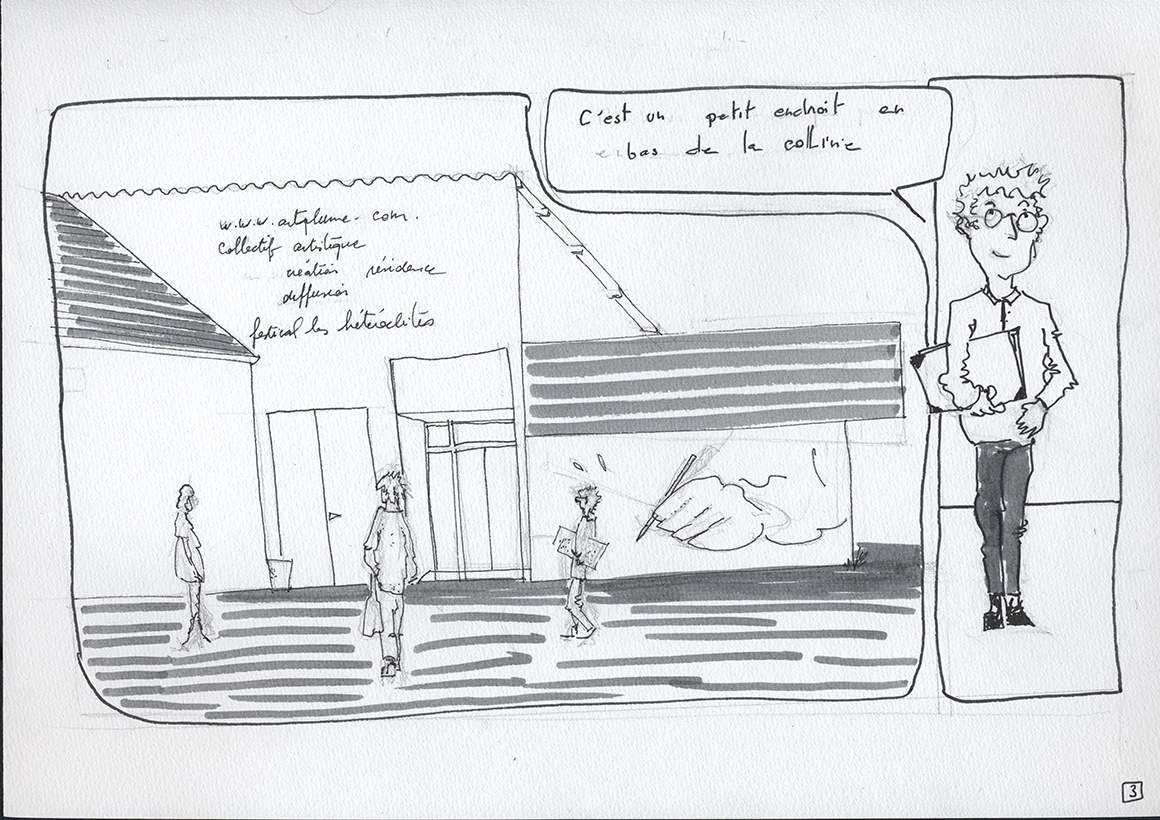 www.artplume.com.
collectif artistique
création résidence
diffusion
festival les hétéroclites
C'est un petit endroit en
bas de la colline
3